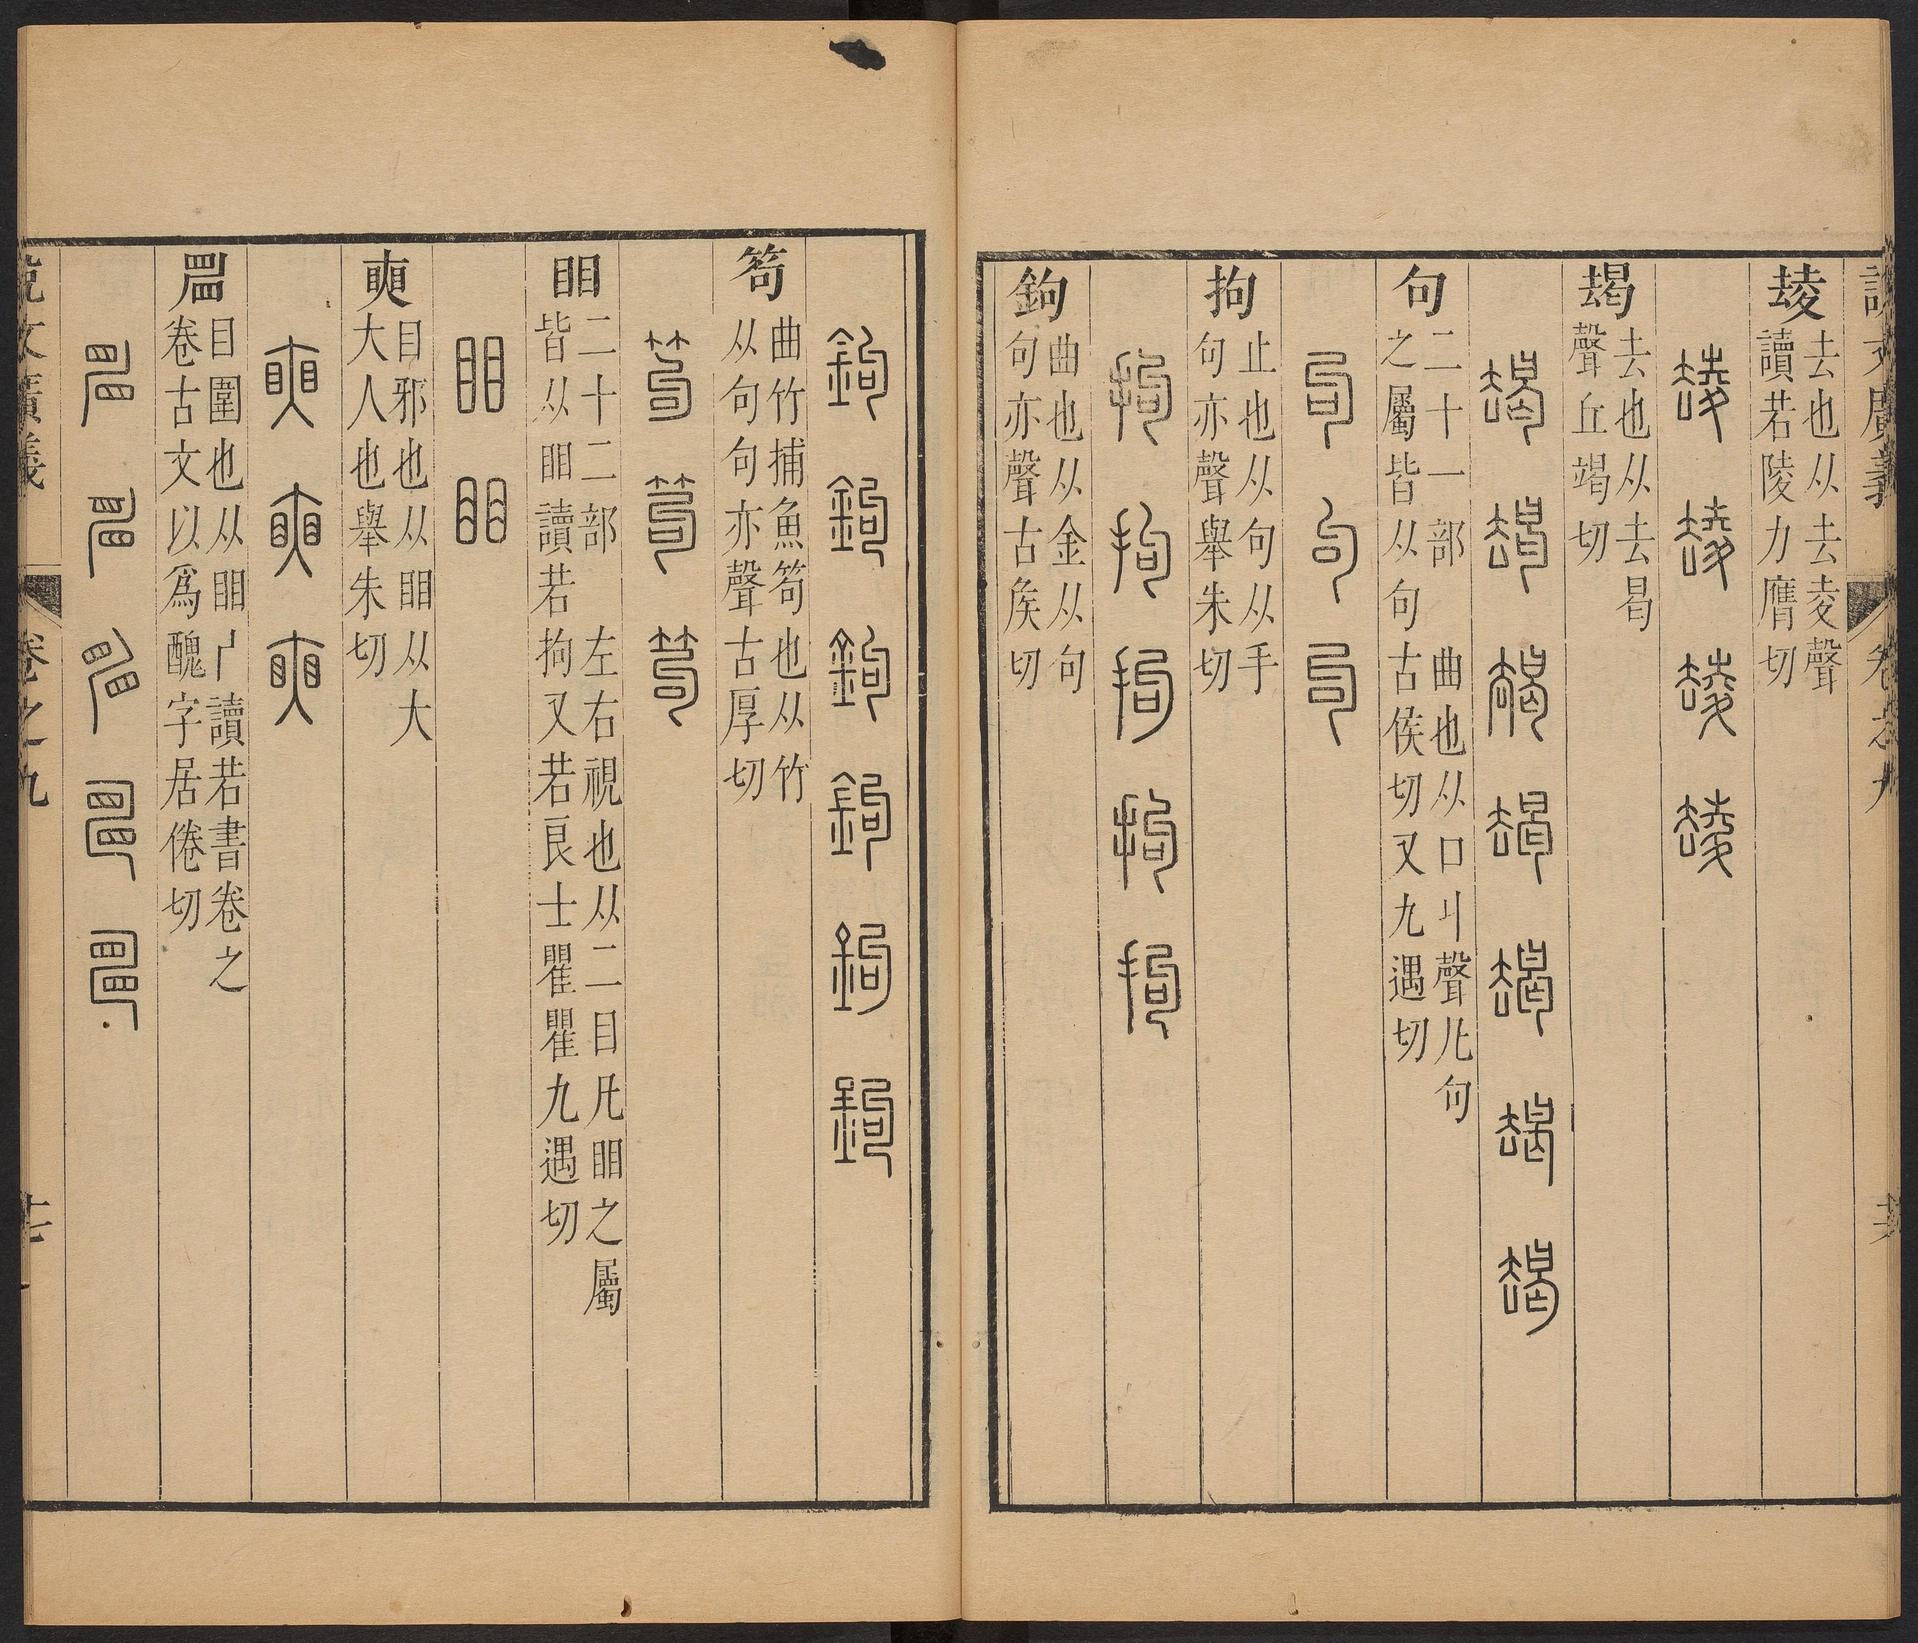 去也从去夌聲
讀若陵力膺切
朅
去也从去曷
聲丘竭切
句
二十一部 曲也从口丩聲凡句
之屬皆从句古侯切又九遇切
拘
止也从句从手
句亦聲舉朱切
鉤
曲也从金从句
句亦聲古矦切
笱
曲竹捕魚笱也从竹
从句句亦聲古厚切
䀠
二十二部 左右視也从二目凡䀠之屬
皆从䀠讀若拘又若良士瞿瞿九遇切
奭
目邪也从䀠从大
大人也舉朱切
目圍也从䀠𠂆讀若書卷之
卷古文以爲醜字居倦切
說文廣義
卷之九